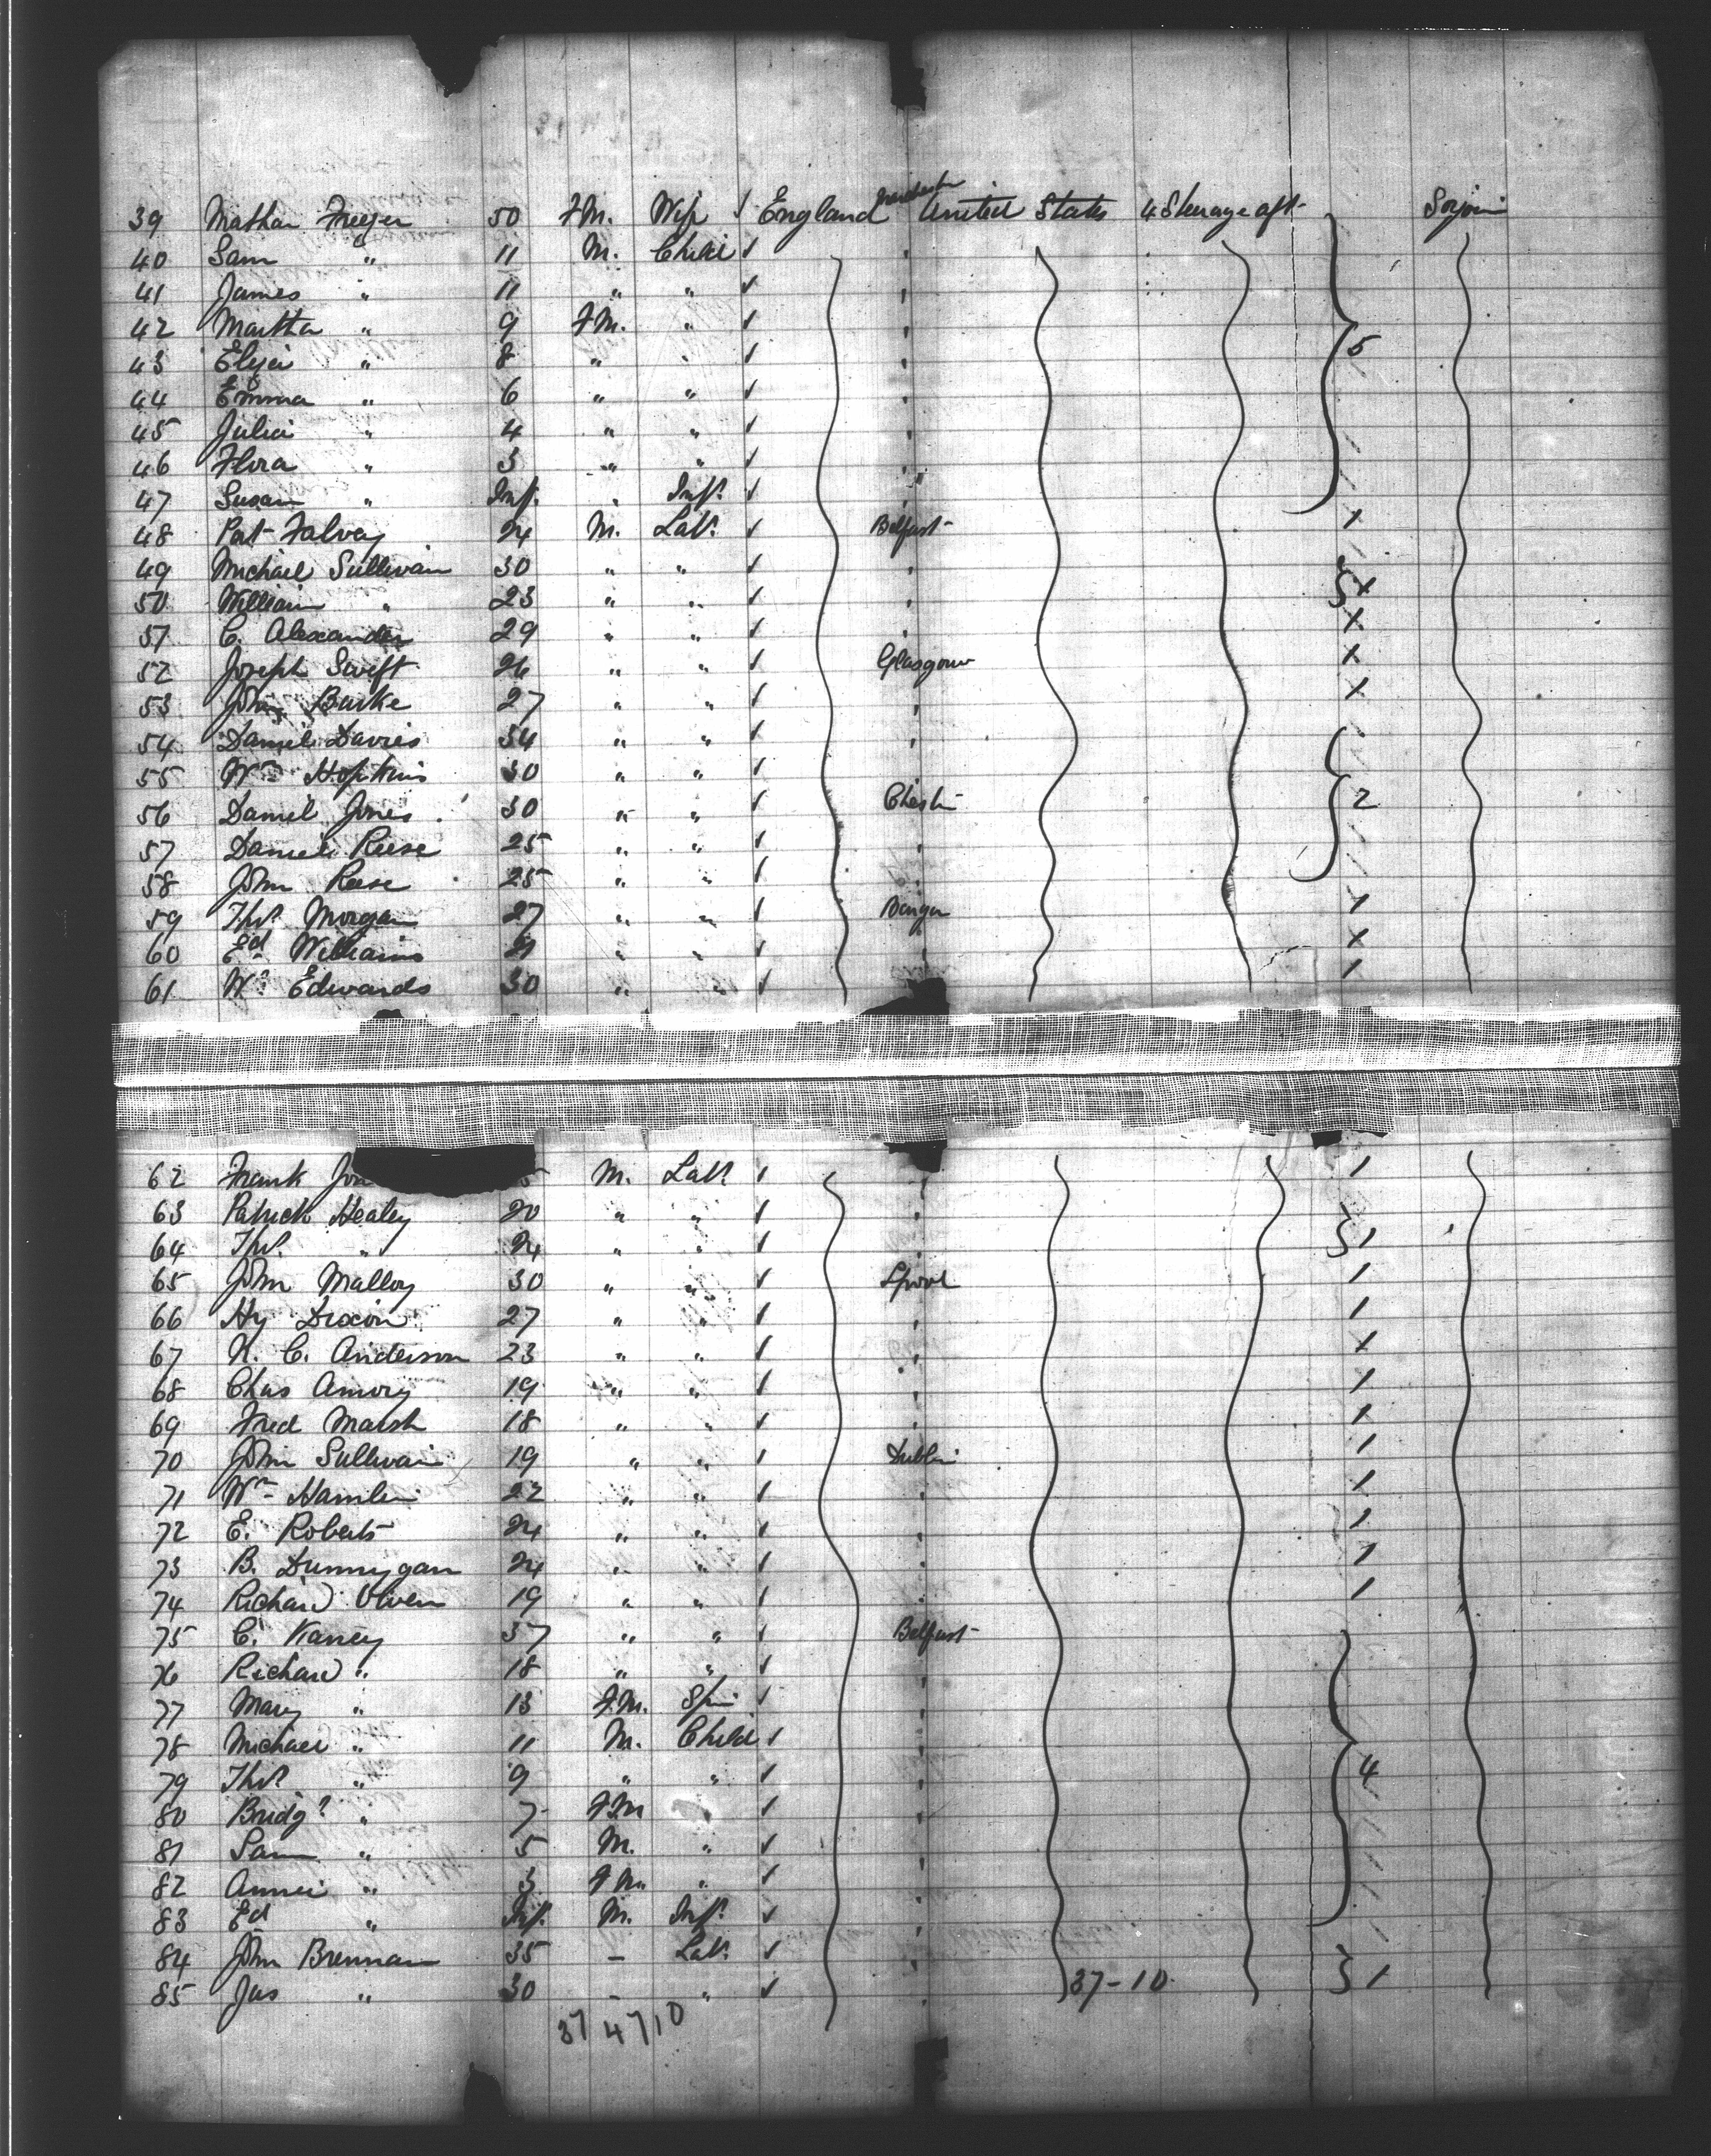 39 Mathan Freezer 50 FM. Wife ✓ England Manchester United States 4 Steerage aft. Sojourn
40 Sam " 11 M. Child ✓ "
41 James " 11 " " ✓ "
42 Martha " 9 FM. " ✓ "
43 Eliza " 8 " " ✓ " 5
44 Emma " 6 " " ✓ "
45 Julia " 4 " " ✓ "
46 Flora " 3 " " ✓ "
47 Susan " Inft. " Inft. ✓ "
48 Pat Falvey 24 M. Labr. ✓ Belfast 1
49 Michael Sullivan 30 " " ✓ "
50 William " 23 " " ✓ " X
51 C. Alexander 29 " " ✓ X
52 Joseph Swift 26 " " ✓ Glasgow X
53 John Burke 27 " " ✓ " X
54 Daniel Davies 34 " " ✓ "
55 Wm Hopkins 30 " " ✓
56 Daniel Jones 30 " " ✓ Chester 2
57 Daniel Reese 25 " " ✓ "
58 John Reese 25 " " ✓ "
59 Thos. Morgan 27 " " ✓ Bangor 1
60 Ed Williams 21 " " ✓ " X
61 Wm Edwards 30 " " ✓ " 1
62 Frank Jon 5 M. Labr. ✓ " 1
63 Patrick Healey 20 " " ✓ "
64 Thos. " 24 " " ✓ " 1
65 John Malloy 30 " " ✓ Lpool 1
66 Hy Dixon 27 " " ✓ " 1
67 N. C. Anderson 23 " " ✓ " X
68 Chas Amory 19 " " ✓ " 1
69 Fred Marsh 18 " " ✓ " 1
70 John Sullivan 19 " " ✓ Dublin 1
71 Wm Hamlin 22 " " ✓ " 1
72 E. Roberts 24 " " ✓ " 1
73 B. Dunnygan 24 " " ✓ " 1
74 Richard Owen 19 " " ✓ " 1
75 C. Varney 37 " " ✓ Belfast
76 Richard " 18 " " ✓ "
77 Mary " 13 FM. Spin ✓ "
78 Michael " 11 M. Child ✓ "
79 Thos. " 9 " " ✓ " 4
80 Bridgt " 7 FM ✓ "
81 Sam " 5 M. " ✓ "
82 Annie " 3 FM. " ✓ "
83 Ed " Inft. M. Inft. ✓ "
84 John Brennan 35 – Labr. ✓ "
85 Jas " 30 – " ✓ " 37-10 1
37 4710